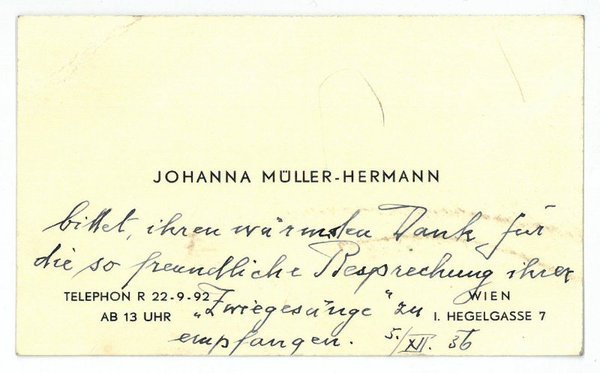 JOHANNA MÜLLER-HERMANN
bittet, ihren wärmsten Dank für
die so freundliche Besprechung ihrer
TELEPHON R 22-9-92 „Zwiegesänge“ zu WIEN
AB 13 UHR I. HEGELGASSE 7
empfangen. 5./XII. 36